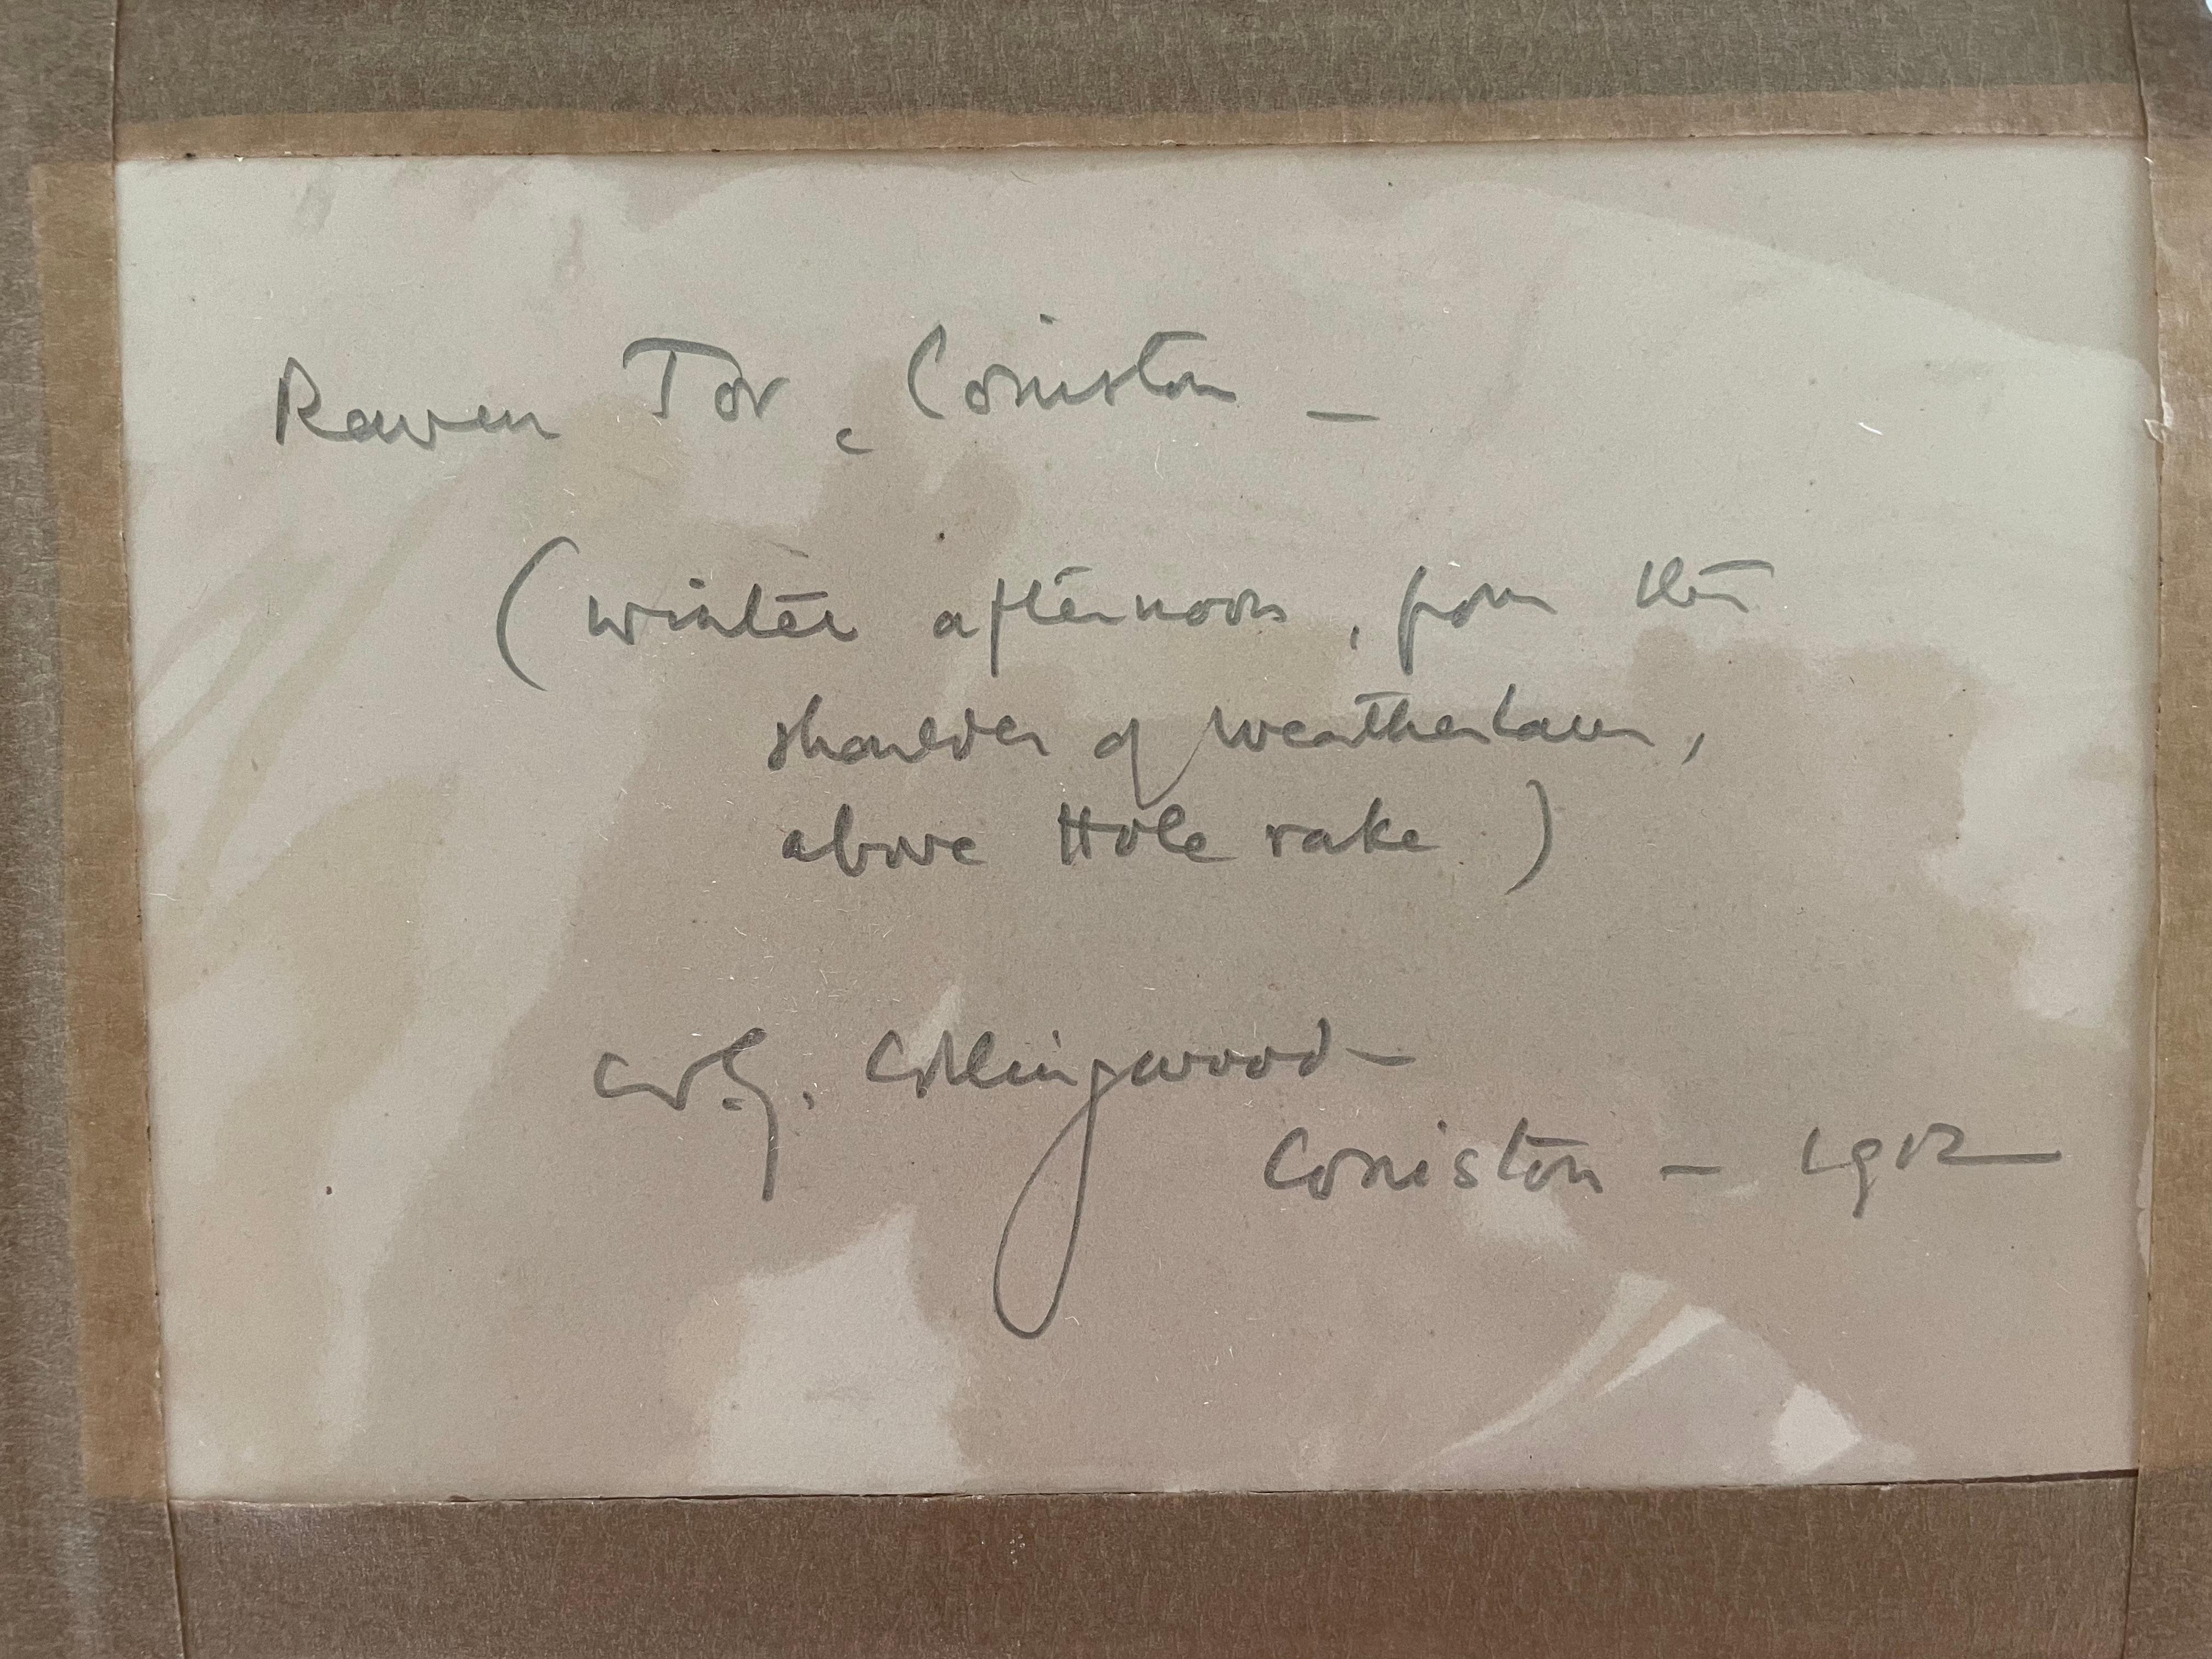 Raven Tor, Coniston —
(winter afternoon, from the
shoulder of Weatherlam,
above Hole rake)
W.G. Collingwood
Coniston — 1912